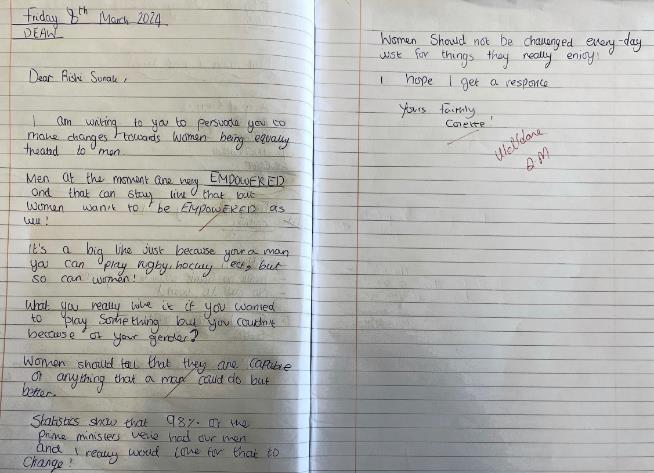 Friday 8th March 2024
DEAW
Dear Rishi Sunak,
I am writing to you to persuade you to
make changes towards women being equally
theatd to men.
Men at the moment are very EMPOWERED
and that can stay like that but
women want to be EMPOWERED as
well!
It's a big like just because your a man
you can play rugby, hockey ect, but
so can women!
What you really like it if you wanted
to play something but you couldn't
because of your gender?
Women should fell that they are capable
of anything that a man could do but
better.
Statistics show that 98% of the
prime ministers we've had our men
and I really would love for that to
change!
Women should not be challenged every-day
just for things they really enjoy!
I hope I get a responce
Yours